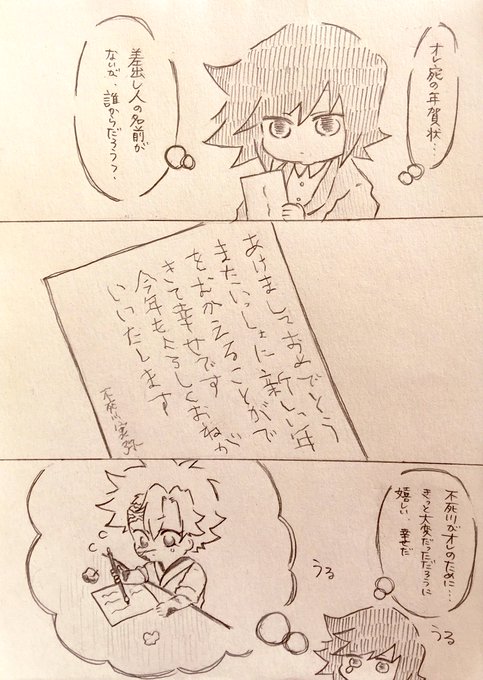 オレ宛の年賀状…
差出し人の名前が
ないが、誰からだろうか、
あけましておめでとう
またいっしょに新しい年
をむかえることがで
きて幸せです
今年もよろしくおねが
いいたします
不死川実弥
不死川がオレのために…
きっと大変だっただろうに
嬉しい、幸せだ
うる
うる